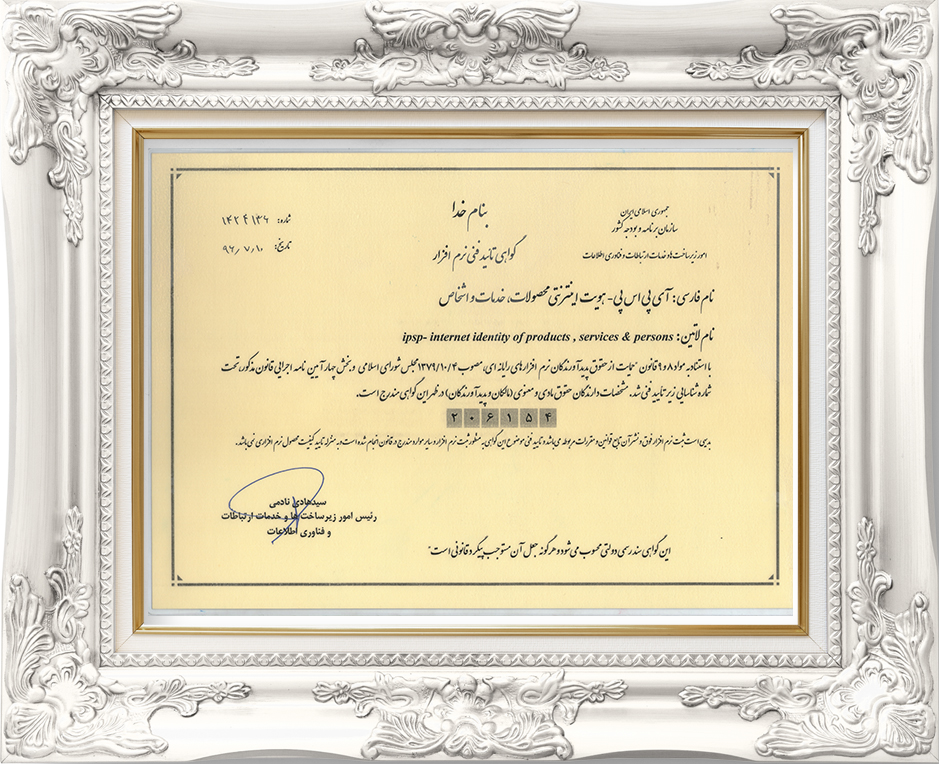 بنام خدا
جمهوری اسلامی ایران
سازمان برنامه و بودجه کشور
امور زیرساخت‌ها و خدمات ارتباطات و فناوری اطلاعات
شماره: ۱۴۲۴۱۳۶
تاریخ: ۹۶/۷/۱۰
گواهی تائید فنی نرم افزار
نام فارسی: آی پی اس پی- هویت اینترنتی محصولات، خدمات و اشخاص
نام لاتین: ipsp- internet identity of products , services & persons
با استناد به مواد ۸ و ۹ قانون "حمایت از حقوق پدیدآورندگان نرم افزارهای رایانه ای، مصوب ۱۳۷۹/۱۰/۴ مجلس شورای اسلامی و بخش چهار آیین نامه اجرایی قانون مذکور، تحت
شماره شناسایی زیر تایید فنی شد. مشخصات دارندگان حقوق مادی و معنوی (مالکان و پدیدآورندگان) در ظهر این گواهی مندرج است.
۲۰۶۱۵۴
بدیهی است ثبت نرم افزار فوق و نشر آن تابع قوانین و مقررات مربوطه می باشد و تایید فنی موضوع این گواهی به منظور ثبت نرم افزار و سایر موارد مندرج در قانون انجام شده است و به منزله تایید کیفیت محصول نرم افزاری نمی باشد.
سیدهادی نادمی
رئیس امور زیرساخت‌ها و خدمات ارتباطات
و فناوری اطلاعات
این گواهی سند رسمی دولتی محسوب می شود و هرگونه جعل آن مستوجب پیگرد قانونی است"